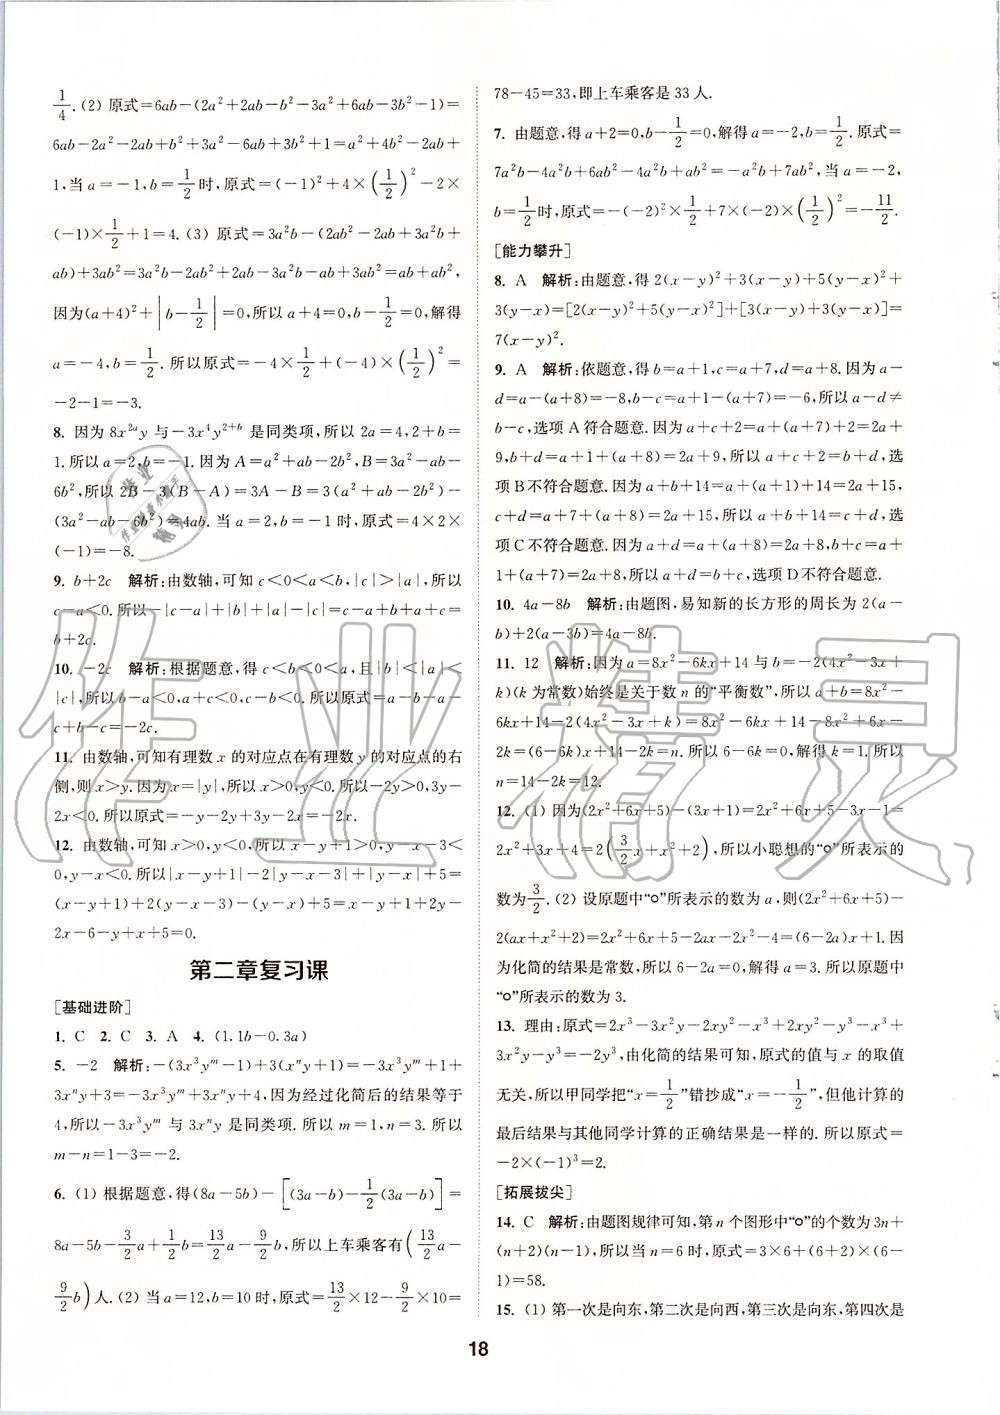 1/4.(2) 原式=6ab-(2a²+2ab-b²-3a²+6ab-3b²-1)=
6ab-2a²-2ab+b²+3a²-6ab+3b²+1=a²+4b²-2ab+
1,当 a=-1,b=1/2时,原式=(-1)²+4×(1/2)²-2×
(-1)×1/2+1=4.(3) 原式=3a²b-(2ab²-2ab+3a²b+
ab)+3ab²=3a²b-2ab²+2ab-3a²b-ab+3ab²=ab+ab²,
因为(a+4)²+|b-1/2|=0,所以 a+4=0,b-1/2=0,解得
a=-4,b=1/2.所以原式=-4×1/2+(-4)×(1/2)²=
-2-1=-3.
8. 因为 8x²ᵃy 与-3x⁴y²⁺ᵇ 是同类项,所以 2a=4,2+b=
1.所以 a=2,b=-1.因为 A=a²+ab-2b²,B=3a²-ab-
6b²,所以 2B-3(B-A)=3A-B=3(a²+ab-2b²)-
(3a²-ab-6b²)=4ab.当 a=2,b=-1 时,原式=4×2×
(-1)=-8.
9. b+2c 解析:由数轴,可知 c<0<a<b,|c|>|a|,所以
c-a<0.所以-|c-a|+|b|+|a|-|c|=c-a+b+a+c=
b+2c.
10. -2c 解析:根据题意,得 c<b<0<a,且|b|<|a|<
|c|,所以 b-a<0,a+c<0,b+c<0.所以原式=a-b-a-
c+b-c=-2c.
11. 由数轴,可知有理数 x 的对应点在有理数 y 的对应点的右
侧,则 x>y.因为 x=|y|,所以 x>0,y<0.所以-2y>0,3y-
2x<0.所以原式=-y-2y+3y-2x=-2x.
12. 由数轴,可知 x>0,y<0,所以 x-y+1>0,y-x-3<
0,y-x<0.所以|x-y+1|-2|y-x-3|+|y-x|+5=
(x-y+1)+2(y-x-3)-(y-x)+5=x-y+1+2y-
2x-6-y+x+5=0.
第二章复习课
[基础进阶]
1. C 2. C 3. A 4. (1.1b-0.3a)
5. -2 解析:-(3x³yᵐ-1)+3(xⁿy+1)=-3x³yᵐ+1+
3xⁿy+3=-3x³yᵐ+3xⁿy+4,因为经过化简后的结果等于
4,所以-3x³yᵐ 与 3xⁿy 是同类项.所以 m=1,n=3.所以
m-n=1-3=-2.
6. (1) 根据题意,得(8a-5b)-[(3a-b)-1/2(3a-b)]=
8a-5b-3/2a+1/2b=13/2a-9/2b,所以上车乘客有(13/2a-
9/2b)人.(2) 当 a=12,b=10 时,原式=13/2×12-9/2×10=
78-45=33,即上车乘客是 33 人.
7. 由题意,得 a+2=0,b-1/2=0,解得 a=-2,b=1/2.原式=
7a²b-4a²b+6ab²-4a²b+ab²=-a²b+7ab²,当 a=-2,
b=1/2时,原式=-(-2)²×1/2+7×(-2)×(1/2)²=-11/2.
[能力攀升]
8. A 解析:由题意,得 2(x-y)²+3(x-y)+5(y-x)²+
3(y-x)=[2(x-y)²+5(x-y)²]+[3(x-y)+3(y-x)]=
7(x-y)².
9. A 解析:依题意,得 b=a+1,c=a+7,d=a+8.因为 a-
d=a-(a+8)=-8,b-c=a+1-(a+7)=-6,所以 a-d≠
b-c,选项 A 符合题意.因为 a+c+2=a+(a+7)+2=2a+
9,b+d=a+1+(a+8)=2a+9,所以 a+c+2=b+d,选
项 B 不符合题意.因为 a+b+14=a+(a+1)+14=2a+15,
c+d=a+7+(a+8)=2a+15,所以 a+b+14=c+d,选
项 C 不符合题意.因为 a+d=a+(a+8)=2a+8,b+c=a+
1+(a+7)=2a+8,所以 a+d=b+c,选项 D 不符合题意.
10. 4a-8b 解析:由题图,易知新的长方形的周长为 2(a-
b)+2(a-3b)=4a-8b.
11. 12 解析:因为 a=8x²-6kx+14 与 b=-2(4x²-3x+
k)(k 为常数)始终是关于数 n 的“平衡数”,所以 a+b=8x²-
6kx+14-2(4x²-3x+k)=8x²-6kx+14-8x²+6x-
2k=(6-6k)x+14-2k=n.所以 6-6k=0,解得 k=1.所以
n=14-2k=12.
12. (1) 因为(2x²+6x+5)-(3x+1)=2x²+6x+5-3x-1=
2x²+3x+4=2(3/2x+x²+2),所以小聪想的“○”所表示的
数为3/2.(2) 设原题中“○”所表示的数为 a,则(2x²+6x+5)-
2(ax+x²+2)=2x²+6x+5-2ax-2x²-4=(6-2a)x+1.因
为化简的结果是常数,所以 6-2a=0.所以原题中
“○”所表示的数为 3.
13. 理由:原式=2x³-3x²y-2xy²-x³+2xy²-y³-x³+
3x²y-y³=-2y³,由化简的结果可知,原式的值与 x 的取值
无关,所以甲同学把“x=1/2”错抄成“x=-1/2”,但他计算的
最后结果与其他同学计算的正确结果是一样的.所以原式=
-2×(-1)³=2.
[拓展拔尖]
14. C 解析:由题图规律可知,第 n 个图形中“○”的个数为 3n+
(n+2)(n-1),所以当 n=6 时,原式=3×6+(6+2)×(6-
1)=58.
15. (1) 第一次是向东,第二次是向西,第三次是向东,第四次是
18
作业精灵